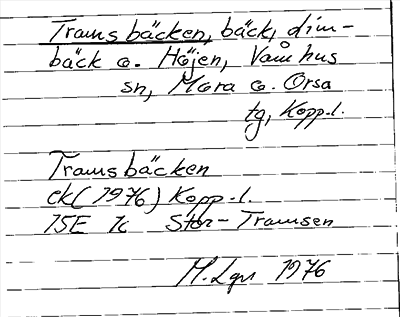 Tramsbäcken, bäck, dim-
bäck o. Höjen, Våmhus
sn, Mora o. Orsa
tg, Kopp.l.
Tramsbäcken
ek(1976) Kopp.l.
15E 1c Stor-Tramsen
M.Lgn 1976